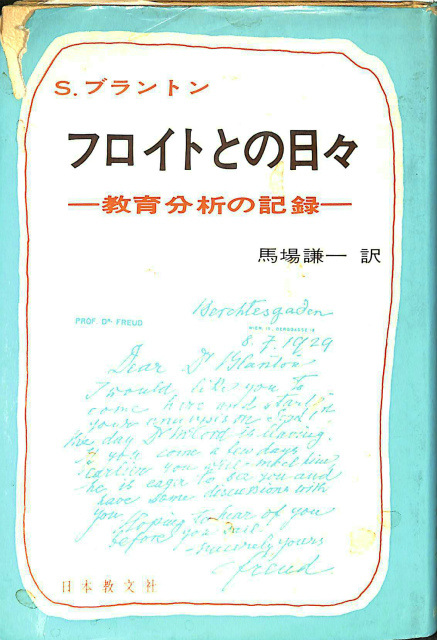 S. ブラントン
フロイトとの日々
―教育分析の記録―
馬場謙一 訳
Berchtesgaden
PROF. DR. FREUD
WIEN, IX., BERGGASSE 19
8. 7. 1929
Dear Dr Blanton
I would like you to
come here and start
your analysis on Sept 1,
the day Dr McCord is leaving.
If you come a few days
earlier you
he is eager to see you and
have some discussions with
you
Hoping to hear of you
before you sail
sincerely yours
freud.
日本教文社